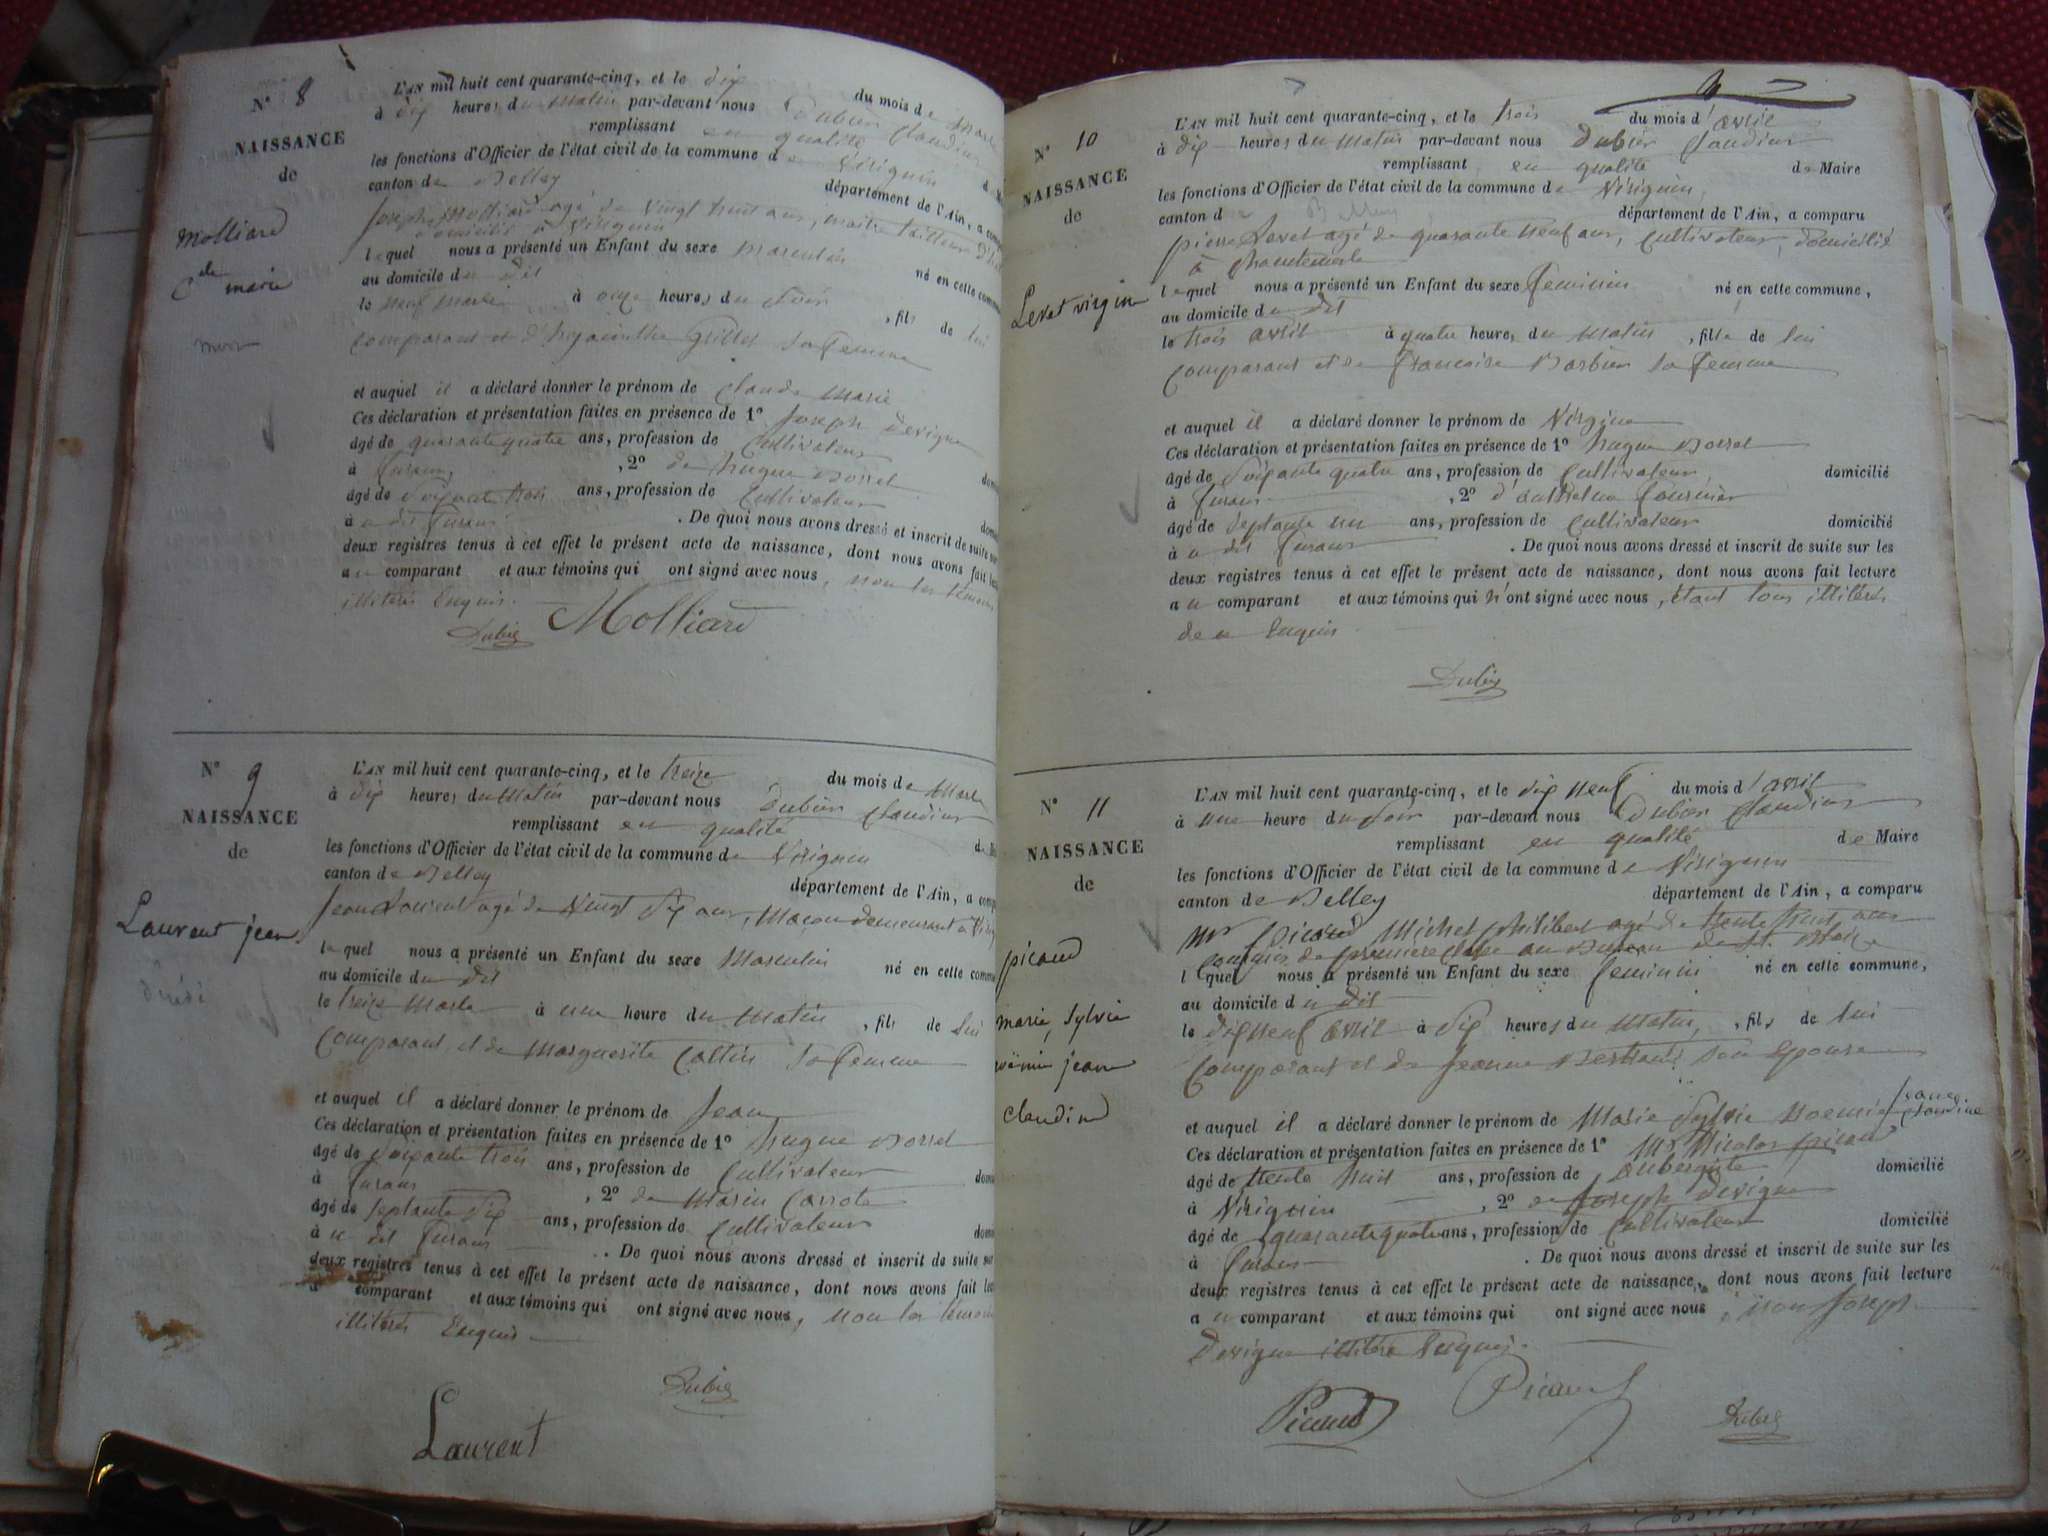 N° 8
NAISSANCE
de
Molliard
Cde marie
L'AN mil huit cent quarante-cinq, et le dix du mois de Mars
à dix heures du Matin par-devant nous Dubier Claudius
remplissant en qualité
les fonctions d'Officier de l'état civil de la commune de Virignin
canton de Belley département de l'Ain, a comp
Joseph Molliard agé de vingt huit ans, maitre tailleur
domicilié à Virignin
lequel nous a présenté un Enfant du sexe Masculin né en cette commune
au domicile du dit
le neuf Mars à onze heures du Soir, fils de lui
comparant et d'hyacinthe Grillet sa femme
et auquel il a déclaré donner le prénom de Claude Marie
Ces déclaration et présentation faites en présence de 1° Joseph Devigne
âgé de quarante quatre ans, profession de Cultivateur
à furans, 2° de hugue Borrel dom
âgé de Soixante trois ans, profession de Cultivateur
à u dit furans . De quoi nous avons dressé et inscrit de suite sur
deux registres tenus à cet effet le présent acte de naissance, dont nous avons fait lec
a u comparant et aux témoins qui ont signé avec nous, non les témoins
illitérés Enquis.
Dubier Molliard
N° 9
NAISSANCE
de
Laurent jean
décédé
L'AN mil huit cent quarante-cinq, et le treize du mois de Mars
à dix heures du Matin par-devant nous Dubier Claudius
remplissant en qualité
les fonctions d'Officier de l'état civil de la commune de Virignin
canton de Belley département de l'Ain, a comp
Jean Laurent agé de vingt dix ans, Maçon demeurant à Virig
lequel nous a présenté un Enfant du sexe Masculin né en cette commune
au domicile du dit
le treize Mars à une heure du Matin, fils de lui
comparant et de Marguerite Cottin sa femme
et auquel il a déclaré donner le prénom de Jean
Ces déclaration et présentation faites en présence de 1° hugue Borrel
âgé de Soixante trois ans, profession de Cultivateur
à furans, 2° de Marin Carrote dom
âgé de Septante dix ans, profession de Cultivateur
à u dit furans . De quoi nous avons dressé et inscrit de suite sur
deux registres tenus à cet effet le présent acte de naissance, dont nous avons fait lec
a comparant et aux témoins qui ont signé avec nous, non les témoins
illitérés Enquis
Dubier
Laurent
N° 10
NAISSANCE
de
Levet virginie
L'AN mil huit cent quarante-cinq, et le trois du mois d'avril
à dix heures du Matin par-devant nous Dubier Claudius
remplissant en qualité de Maire
les fonctions d'Officier de l'état civil de la commune de Virignin
canton de Belley département de l'Ain, a comparu
pierre Levet agé de quarante neuf ans, Cultivateur, domicilié
à
lequel nous a présenté un Enfant du sexe féminin né en cette commune,
au domicile du dit
le trois avril à quatre heures du Matin, fille de lui
comparant et de françoise Barbier sa femme
et auquel il a déclaré donner le prénom de Virginie
Ces déclaration et présentation faites en présence de 1° hugue Borrel
âgé de Soixante quatre ans, profession de Cultivateur domicilié
à furans, 2° d'anthelme Fournier
âgé de Septante un ans, profession de Cultivateur domicilié
à u dit furans . De quoi nous avons dressé et inscrit de suite sur les
deux registres tenus à cet effet le présent acte de naissance, dont nous avons fait lecture
a u comparant et aux témoins qui n'ont signé avec nous, étant tous illitérés
de ce Enquis
Dubier
N° 11
NAISSANCE
de
picaud
marie, Sylvie
noëmie jeane
claudine
L'AN mil huit cent quarante-cinq, et le dix neuf du mois d'avril
à une heure du Soir par-devant nous Dubier Claudius
remplissant en qualité de Maire
les fonctions d'Officier de l'état civil de la commune de Virignin
canton de Belley département de l'Ain, a comparu
Mr Picaud Michel philibert agé de trente huit ans
commis de première classe au Bureau de St. Blaise
lequel nous a présenté un Enfant du sexe féminin né en cette commune,
au domicile du dit
le dix neuf avril à dix heures du Matin, fils de lui
comparant et de jeanne Bertrand son Epouse
et auquel il a déclaré donner le prénom de Marie Sylvie Noemie jeanne Claudine
Ces déclaration et présentation faites en présence de 1° Mr Nicolas picaud
âgé de trente huit ans, profession de aubergiste domicilié
à Virignin, 2° de Joseph Devigne
âgé de quarante quatre ans, profession de Cultivateur domicilié
à furans . De quoi nous avons dressé et inscrit de suite sur les
deux registres tenus à cet effet le présent acte de naissance, dont nous avons fait lecture
a u comparant et aux témoins qui ont signé avec nous, non Joseph
Devigne illitéré Enquis.
Picaud Picaud Dubier